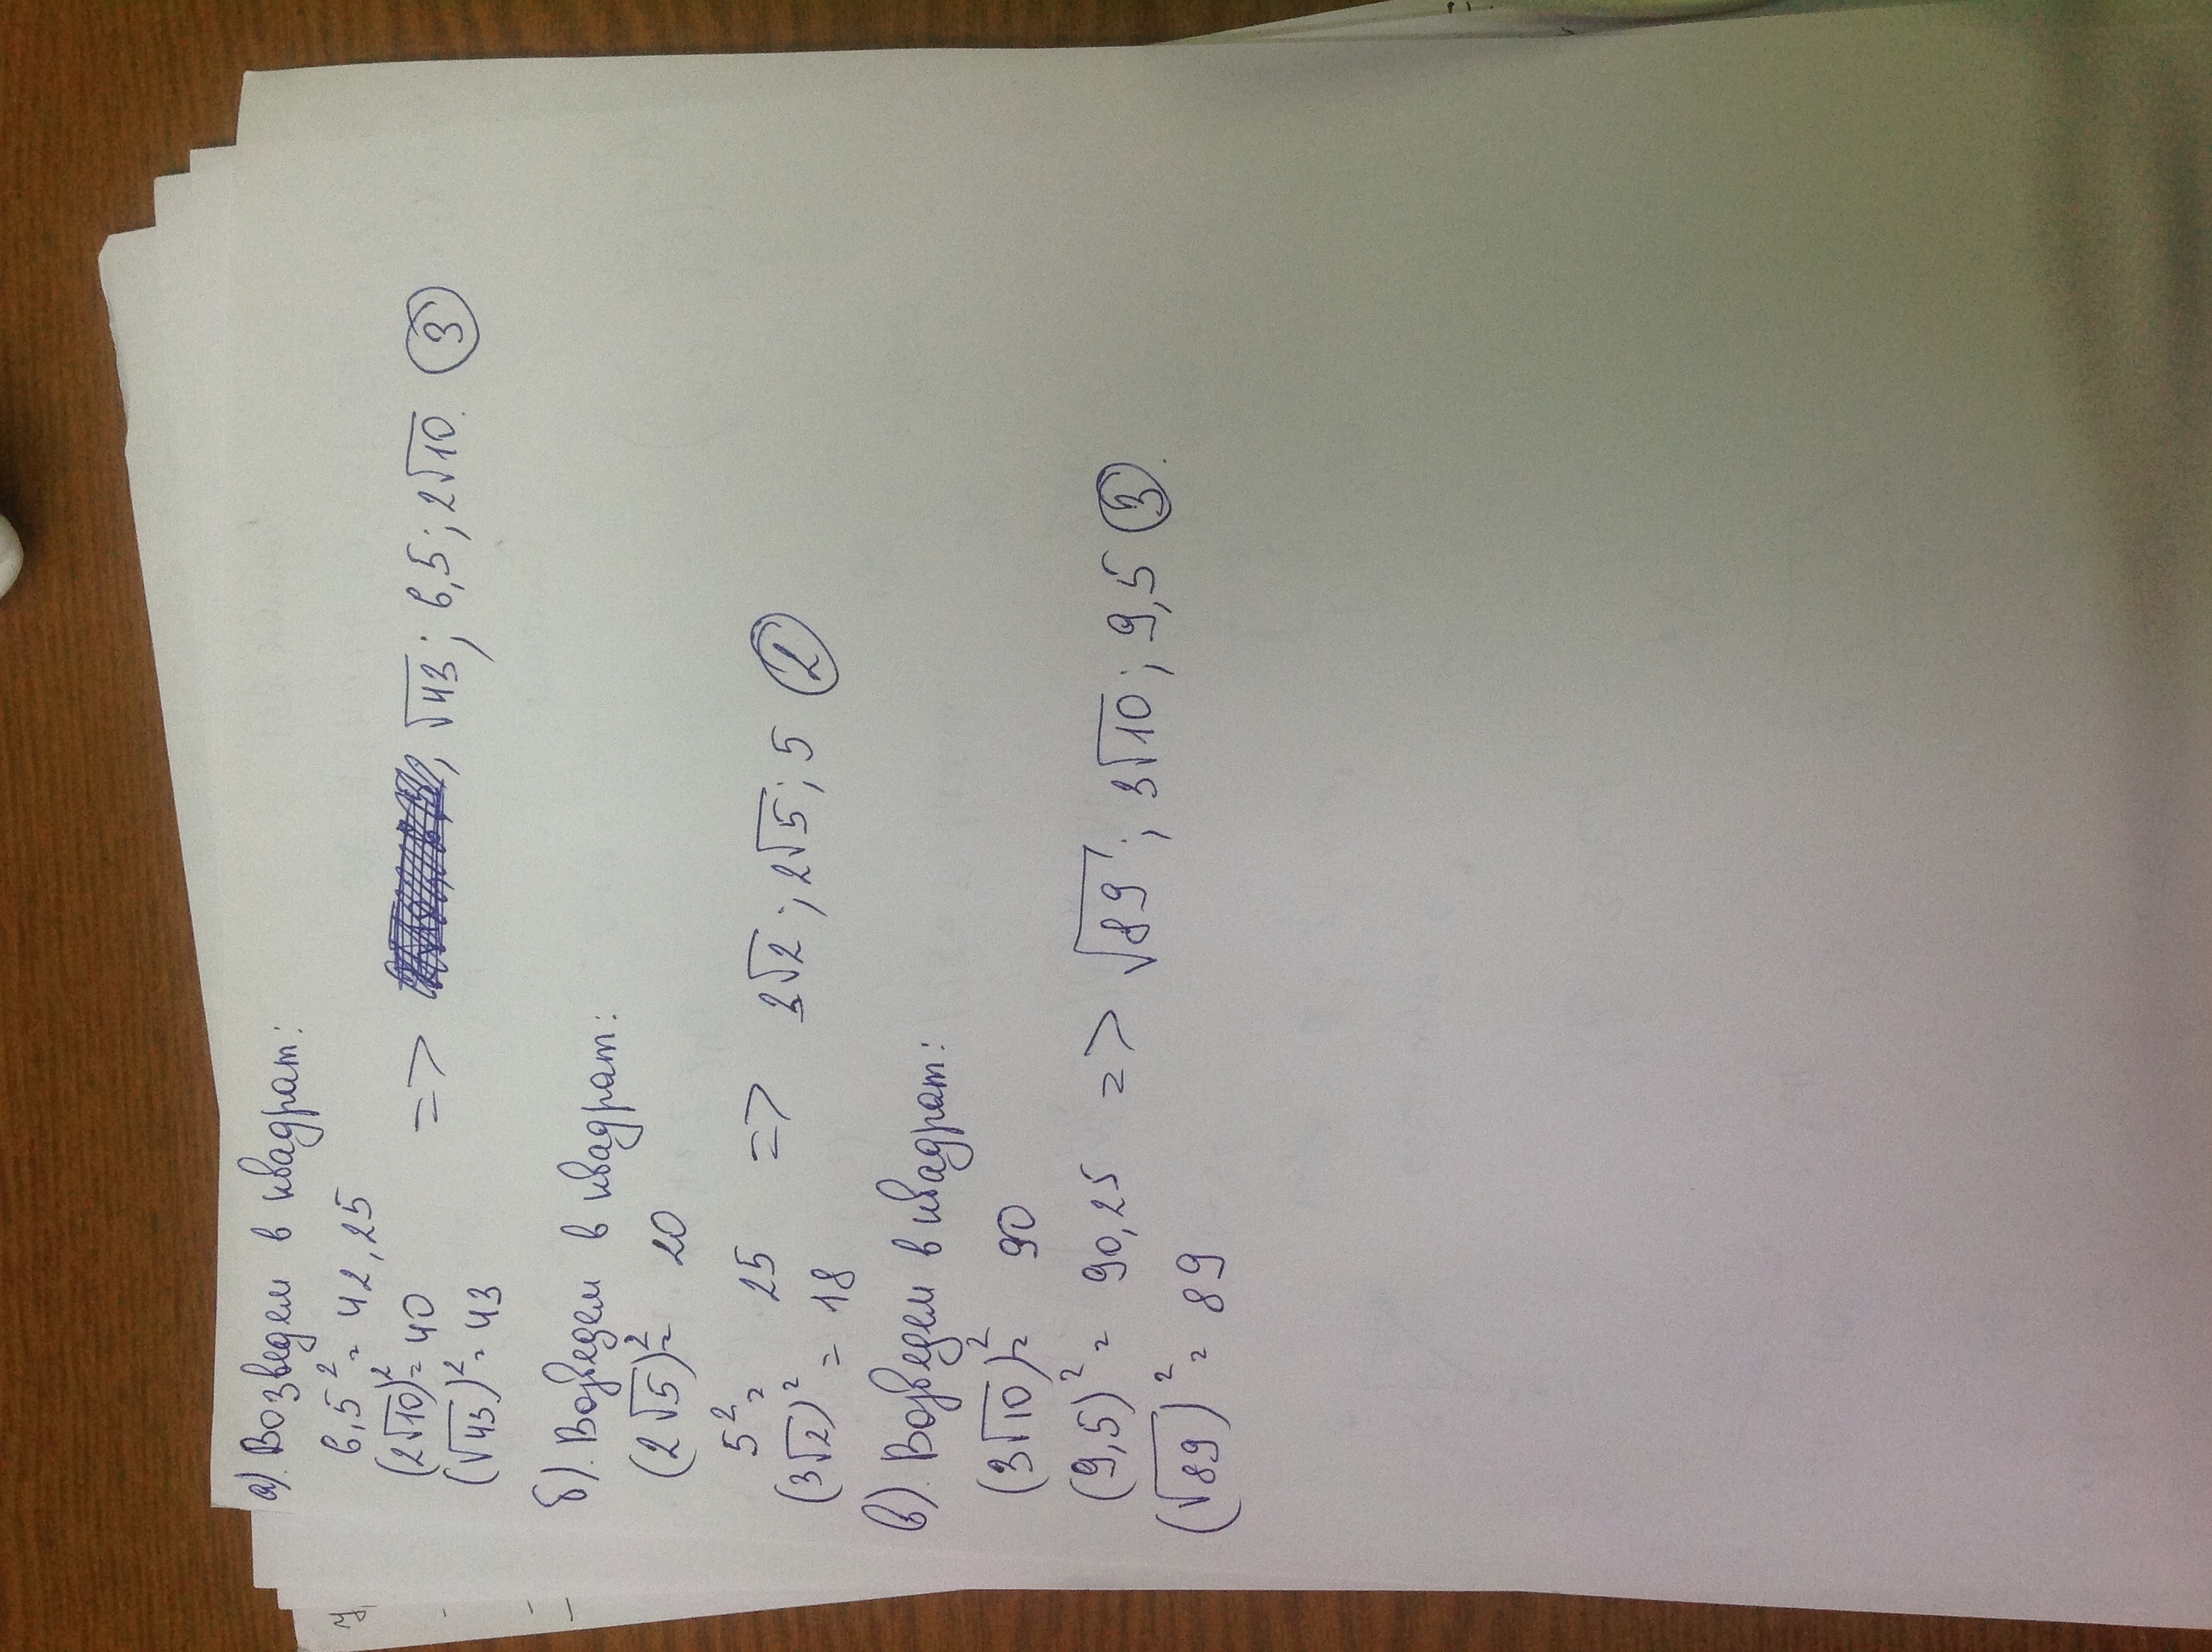 а). Возведем в квадрат:
6,5² = 42,25
(2√10)² = 40 => √43; 6,5; 2√10. 3
(√43)² = 43
б). Возведем в квадрат:
(2√5)² = 20
5² = 25 => 3√2; 2√5; 5 2
(3√2)² = 18
в). Возведем в квадрат:
(3√10)² = 90
(9,5)² = 90,25 => √89; 3√10; 9,5 3.
(√89)² = 89